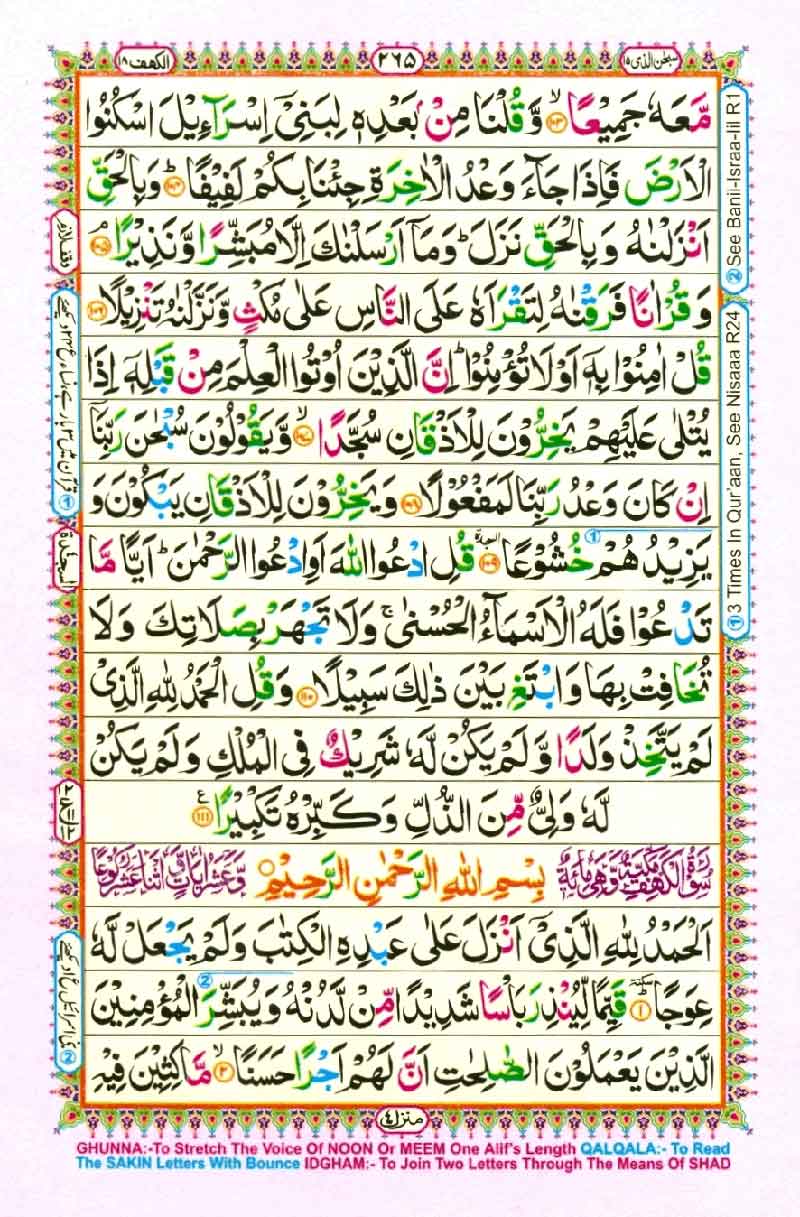 سبحٰن الذی ۱۵
۲۶۵
الكهف ۱۸
مَّعَهٗ جَمِيْعًا ۙ‏﴿۱۰۳﴾ وَّقُلْنَا مِنْۢ بَعْدِهٖ لِبَنِىْۤ اِسْرَآءِيْلَ اسْكُنُوا
الْاَرْضَ فَاِذَا جَآءَ وَعْدُ الْاٰخِرَةِ جِئْنَا بِكُمْ لَفِيْفًا ؕ‏﴿۱۰۴﴾ وَبِالْحَـقِّ
اَنْزَلْنٰهُ وَبِالْحَـقِّ نَزَلَ‌ ؕ وَمَاۤ اَرْسَلْنٰكَ اِلَّا مُبَشِّرًا وَّنَذِيْرًا ۘ‏﴿۱۰۵﴾
وَقُرْاٰنًا فَرَقْنٰهُ لِتَقْرَاَهٗ عَلَى النَّاسِ عَلٰى مُكْثٍ وَّنَزَّلْنٰهُ تَنْزِيْلًا‏﴿۱۰۶﴾
قُلْ اٰمِنُوْا بِهٖۤ اَوْ لَا تُؤْمِنُوْا‌ ؕ اِنَّ الَّذِيْنَ اُوْتُوا الْعِلْمَ مِنْ قَبْلِهٖۤ اِذَا
يُتْلٰى عَلَيْهِمْ يَخِرُّوْنَ لِلْاَذْقَانِ سُجَّدًا ۙ‏﴿۱۰۷﴾ وَّيَقُوْلُوْنَ سُبْحٰنَ رَبِّنَاۤ
اِنْ كَانَ وَعْدُ رَبِّنَا لَمَفْعُوْلًا‏﴿۱۰۸﴾ وَيَخِرُّوْنَ لِلْاَذْقَانِ يَبْكُوْنَ وَ
يَزِيْدُهُمْ خُشُوْعًا ۩‏﴿۱۰۹﴾ قُلِ ادْعُوا اللّٰهَ اَوِ ادْعُوا الرَّحْمٰنَ‌ ؕ اَ يًّا مَّا
تَدْعُوْا فَلَهُ الْاَسْمَآءُ الْحُسْنٰى ‌ۚ وَلَا تَجْهَرْ بِصَلَاتِكَ وَلَا
تُخَافِتْ بِهَا وَابْتَغِ بَيْنَ ذٰلِكَ سَبِيْلًا‏﴿۱۱۰﴾ وَقُلِ الْحَمْدُ لِلّٰهِ الَّذِىْ
لَمْ يَتَّخِذْ وَلَدًا وَّلَمْ يَكُنْ لَّهٗ شَرِيْكٌ فِى الْمُلْكِ وَلَمْ يَكُنْ
لَّهٗ وَلِىٌّ مِّنَ الذُّلِّ وَكَبِّرْهُ تَكْبِيْرًا‏﴿۱۱۱﴾ ع
سُوْرَةُ الْكَهْفِ مَكِّيَّةٌ وَّهِىَ مِائَةٌ بِسْمِ اللّٰهِ الرَّحْمٰنِ الرَّحِيْمِ وَّعَشْرُ اٰيَاتٍ وَّاثْنَا عَشَرَ رُكُوْعًا
اَلْحَمْدُ لِلّٰهِ الَّذِىْۤ اَنْزَلَ عَلٰى عَبْدِهِ الْكِتٰبَ وَلَمْ يَجْعَلْ لَّهٗ
عِوَجًا ؕ‏﴿۱﴾ قَيِّمًا لِّيُنْذِرَ بَاْسًا شَدِيْدًا مِّنْ لَّدُنْهُ وَيُبَشِّرَ الْمُؤْمِنِيْنَ
الَّذِيْنَ يَعْمَلُوْنَ الصّٰلِحٰتِ اَنَّ لَهُمْ اَجْرًا حَسَنًا ۙ‏﴿۲﴾ مَّاكِثِيْنَ فِيْهِ
منزل ۴
وقف لازم
السجدة
② See Banii-Israa-Iil R1
① 3 Times In Qur'aan, See Nisaaa R24
GHUNNA:-To Stretch The Voice Of NOON Or MEEM One Alif's Length QALQALA:- To Read
The SAKIN Letters With Bounce IDGHAM:- To Join Two Letters Through The Means Of SHAD